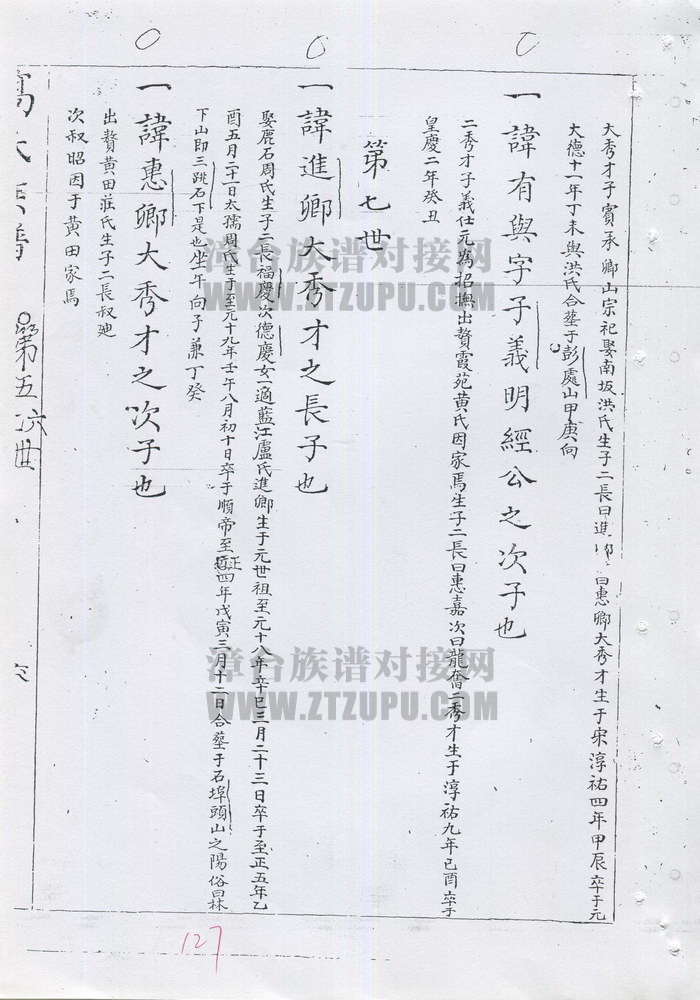 大秀才子賓承卿山宗祀娶南坂洪氏生子二長曰進卿 曰惠卿大秀才生于宋淳祐四年甲辰卒于元
大德十一年丁未與洪氏合塟于彭處山甲庚向
一諱有與字子義明經公之次子也
二秀才子義仕元為招撫出贅霞苑黃氏因家焉生子二長曰惠嘉次曰龍奮二秀才生于淳祐九年己酉卒于
皇慶二年癸丑
第七世
一諱進卿大秀才之長子也
娶鹿石周氏生子二長福慶次德慶女一適藍江盧氏進卿生于元世祖至元十八年辛巳三月二十三日卒于至正五年乙
酉五月二十一日太孺周氏生于至元十九年壬午八月初十日卒于順帝至正四年戊寅三月十二日合塟于石埠頭山之陽俗曰林
下山即三跳石下是也坐午向子兼丁癸
一諱惠卿大秀才之次子也
出贅黃田莊氏生子二長叔廸
次叔昭因于黃田家焉
第五六世
127
漳台族谱对接网
WWW.ZTZUPU.COM
漳台族谱对接网
WWW.ZTZUPU.COM